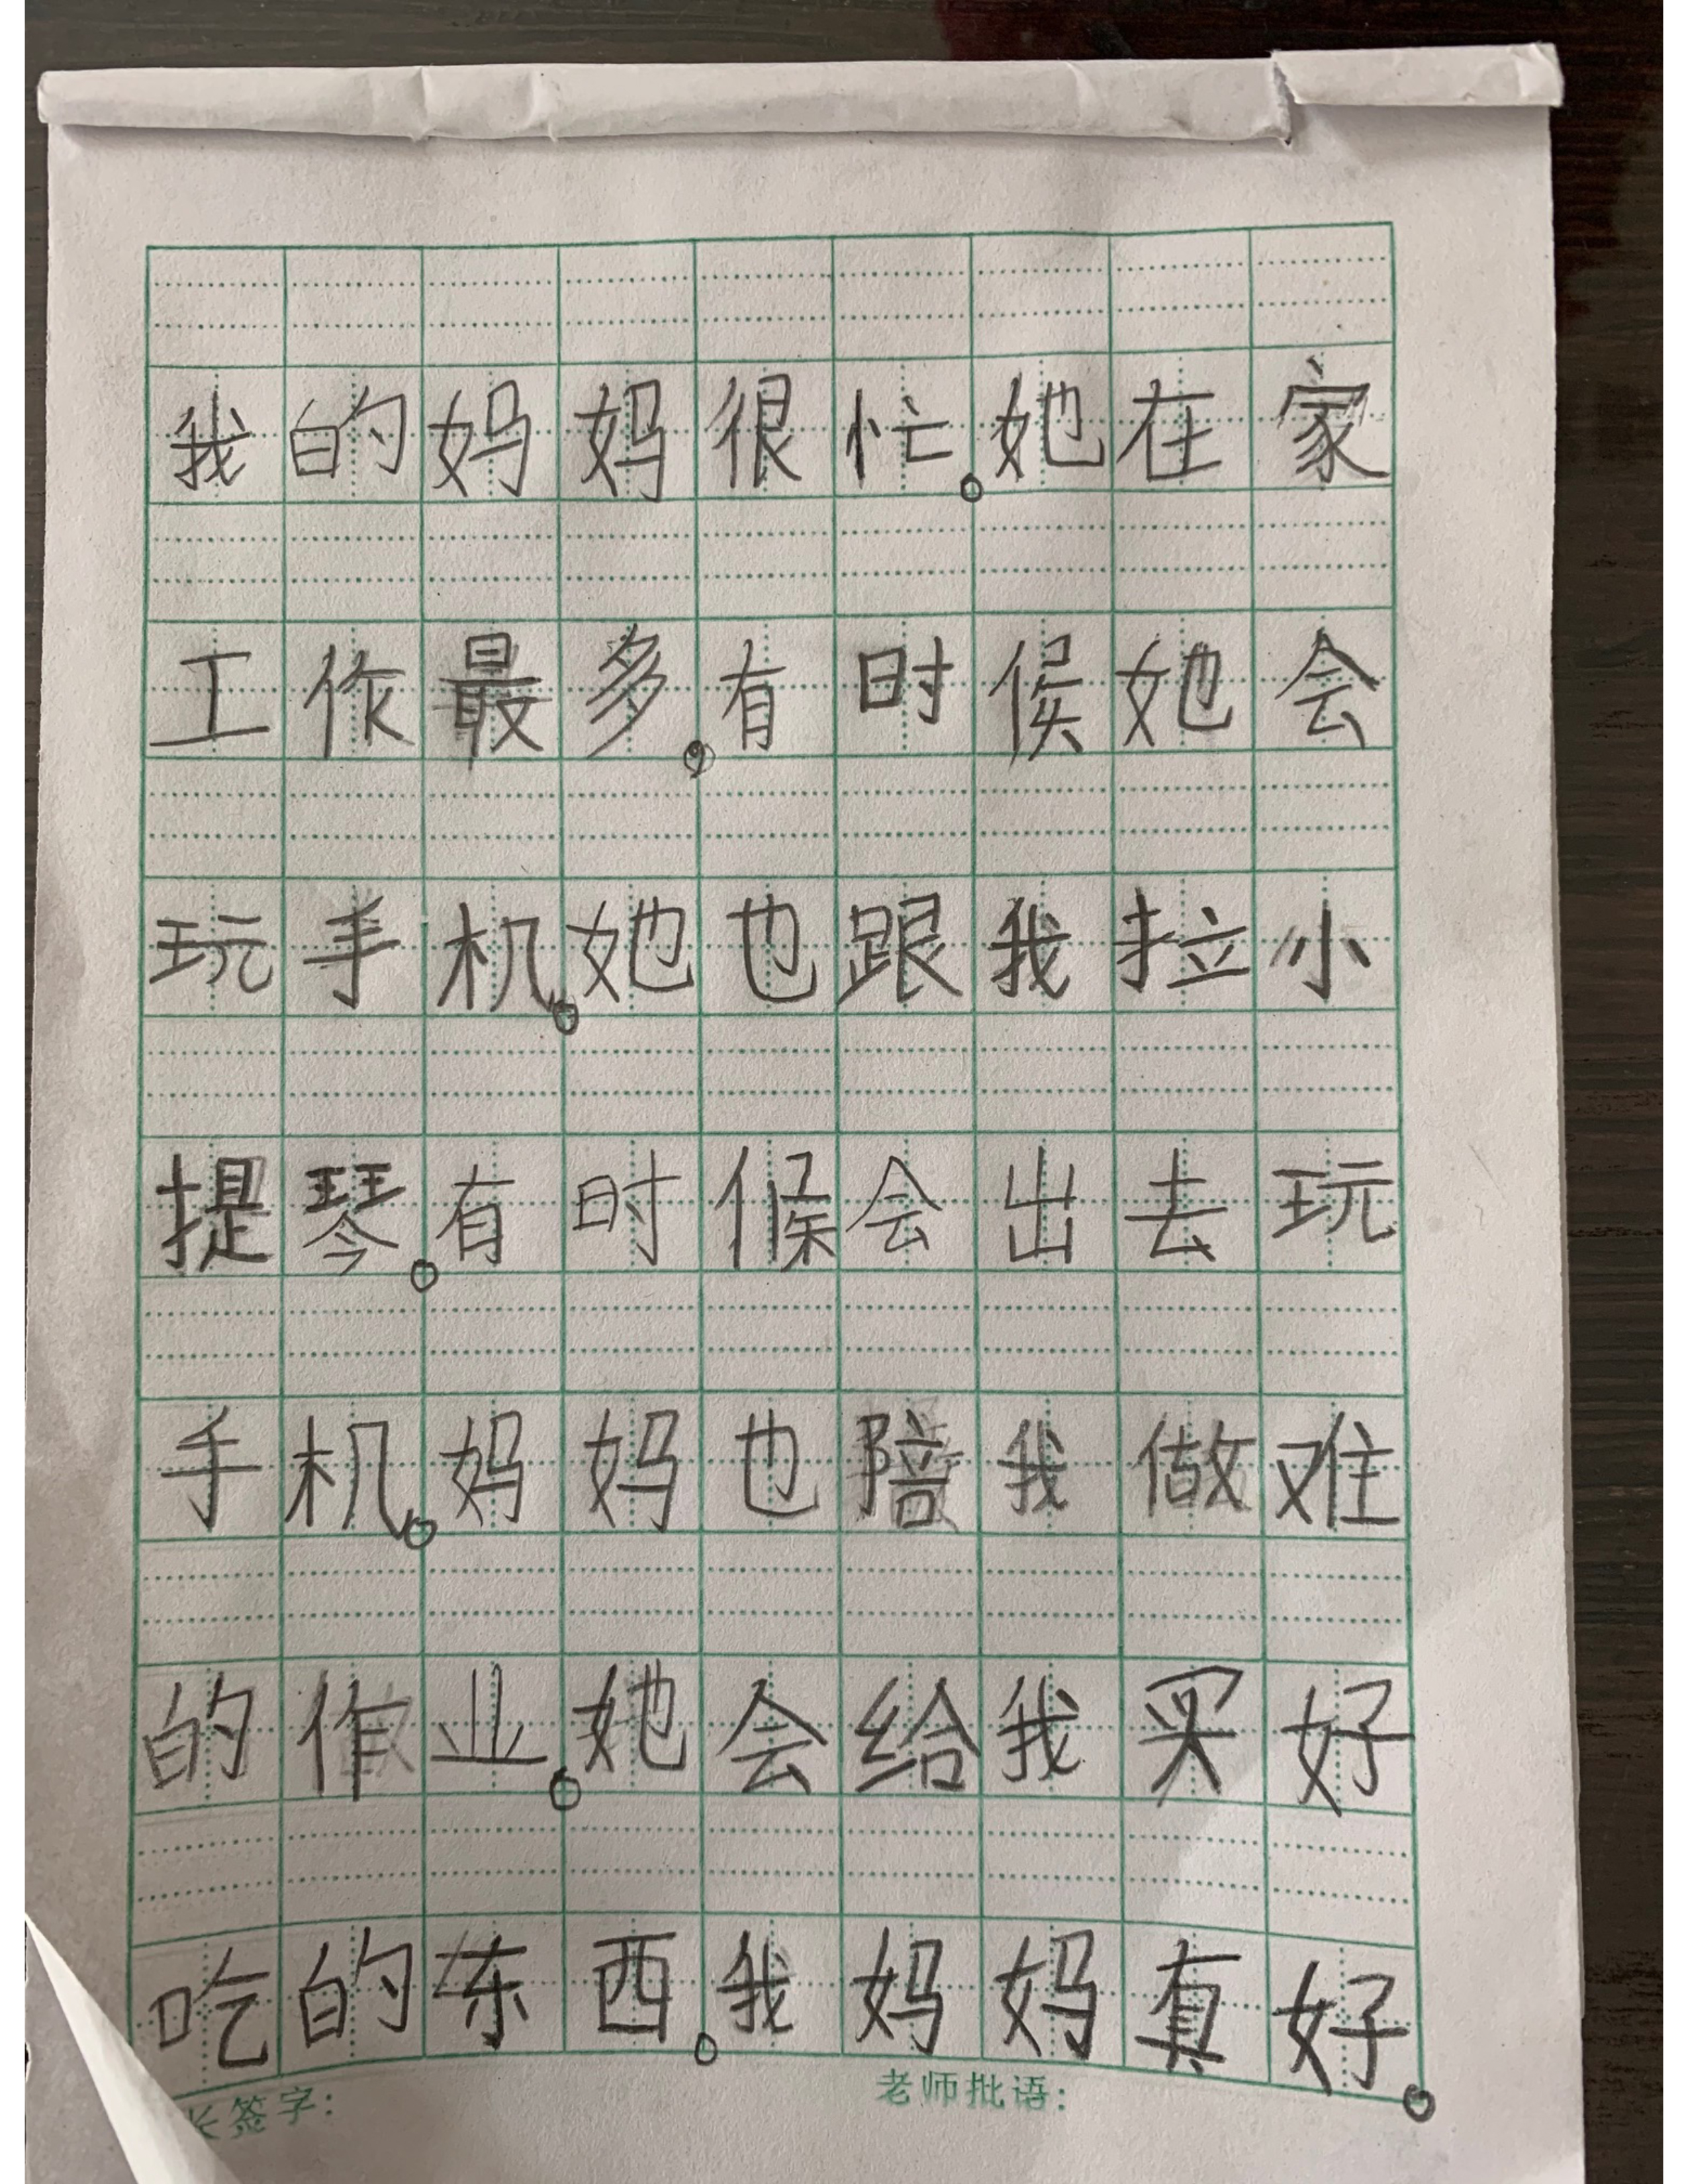 我的妈妈很忙。她在家
工作最多。有时候她会
玩手机。她也跟我拉小
提琴。有时候会出去玩
手机。妈妈也陪我做难
的作业。她会给我买好
吃的东西。我妈妈真好。
长签字: 老师批语: